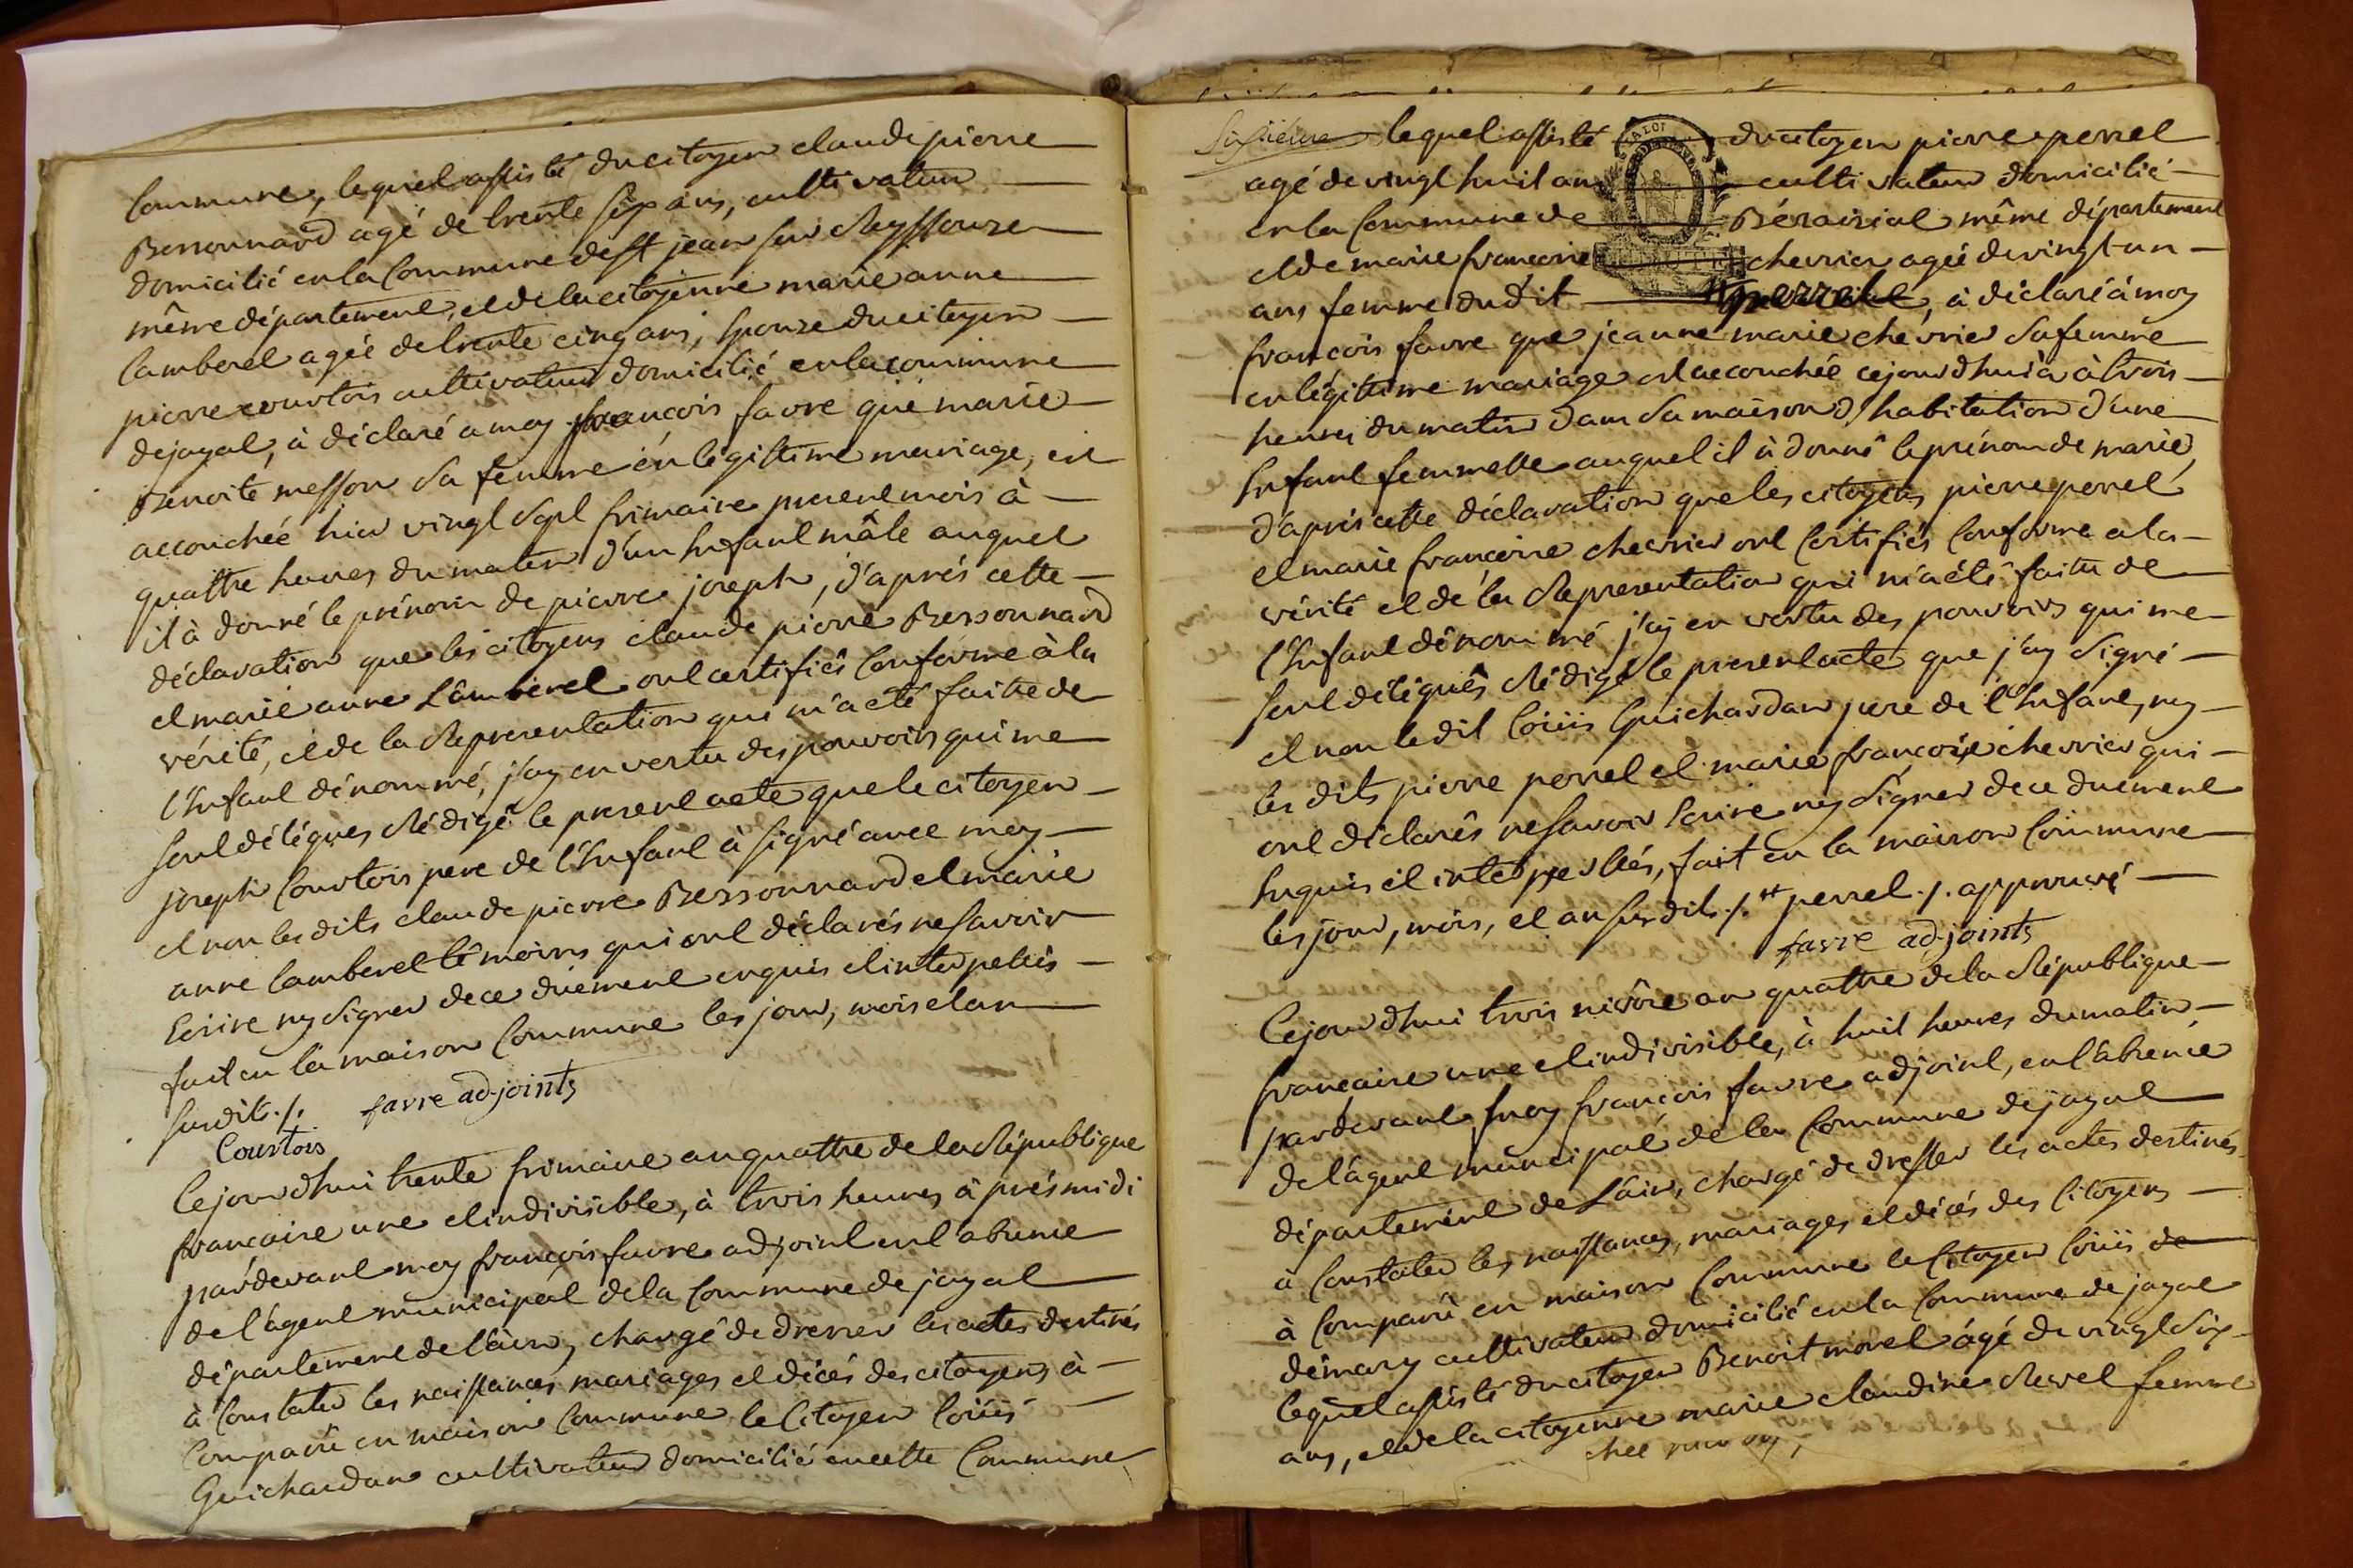 Commune, lequel assisté du citoyen claude pierre
Bessonnard agé de trente six ans, cultivateur
domicilié en la Commune de st jean sur Reyssouze
même département, et de la citoyenne marie anne
Lamberel agée de trente cinq ans, épouze du citoyen
pierre courtois cultivateur domicilié en la commune
de jayat, à déclaré a moy françois favre que marie
Benoite messon sa femme en légittime mariage, est
accouchée hier vingt sept frimaire present mois à
quattre heures du matin d'un Enfant mâle auquel
il à donné le prénom de pierre joseph, d'aprés cette
déclaration que les citoyens claude pierre Bessonnard
et marie anne Lamberel ont certifiés conforme à la
vérité, et de la Representation qui m'a été faite de
l'Enfant dénommé, j'ay en vertu des pouvoirs qui me
sont délégués Rédigé le present acte que le citoyen
joseph Courtois pere de l'Enfant à signé avec moy
et non les dits claude pierre Bessonnard et marie
anne Lamberel témoins qui ont déclarés ne savoir
Ecrire ny signer de ce duement enquis et interpellés
fait en la maison Commune les jour, mois et an
susdits ./. favre adjoints
Courtois
Cejourd'hui trente frimaire an quattre de la République
francaise une et indivisible, à trois heures après midi
pardevant moy françois favre adjoint en l'absence
de l'agent municipal de la Commune de jayat
département de l'ain, chargé de dresser les actes destinés
à Constater les naissances mariages et décés des citoyens à
Comparû en maison Commune le Citoyen Loüis
Guichardan cultivateur domicilié en cette Commune
lequel assisté du citoyen pierre perrel
agé de vingt huit ans cultivateur domicilié
en la Commune de Béraizial même département
et de marie francoise chevrier agée de vingt un
ans femme dudit perrel, à déclaré à moy
francois favre que jeanne marie chevrier sa femme
en légittime mariage est accouchée cejourd'hui à trois
heures du matin dans sa maison d'habitation d'une
Enfant femmelle auquel il à donné le prénom de marie,
d'aprés cette déclaration que les citoyens pierre perrel
et marie francoise chevrier ont Certifiés Conforme a la
vérité et de la Representation qui m'a été faite de
l'Enfant dénommé j'ay en vertu des pouvoirs qui me
sont délégués Rédigé le present acte que j'ay signé
et non le dit Loüis Guichardan pere de l'Enfant, ny
les dits pierre perrel et marie françoise chevrier qui
ont déclarés ne savoir Ecrire ny signer de ce duement
Enquis et interpellés, fait en la maison Commune
les jour, mois, et an susdits ./. perrel ./. approuvé
favre adjoints
Cejourd'hui trois nivôse an quattre de la République
francaise une et indivisible, à huit heures du matin
pardevant moy françois favre adjoint, en l'absence
de l'agent municipal de la Commune de jayat
département de L'ain, chargé de dresser les actes destinés
à Constater les naissances, mariages et décés des Citoyens
à Comparû en maison Commune le Citoyen Loüis de
démary cultivateur domicilié en la Commune de jayat
lequel assisté du citoyen Benoit morel âgé de vingt six
ans, et de la citoyenne marie claudine Revel femme